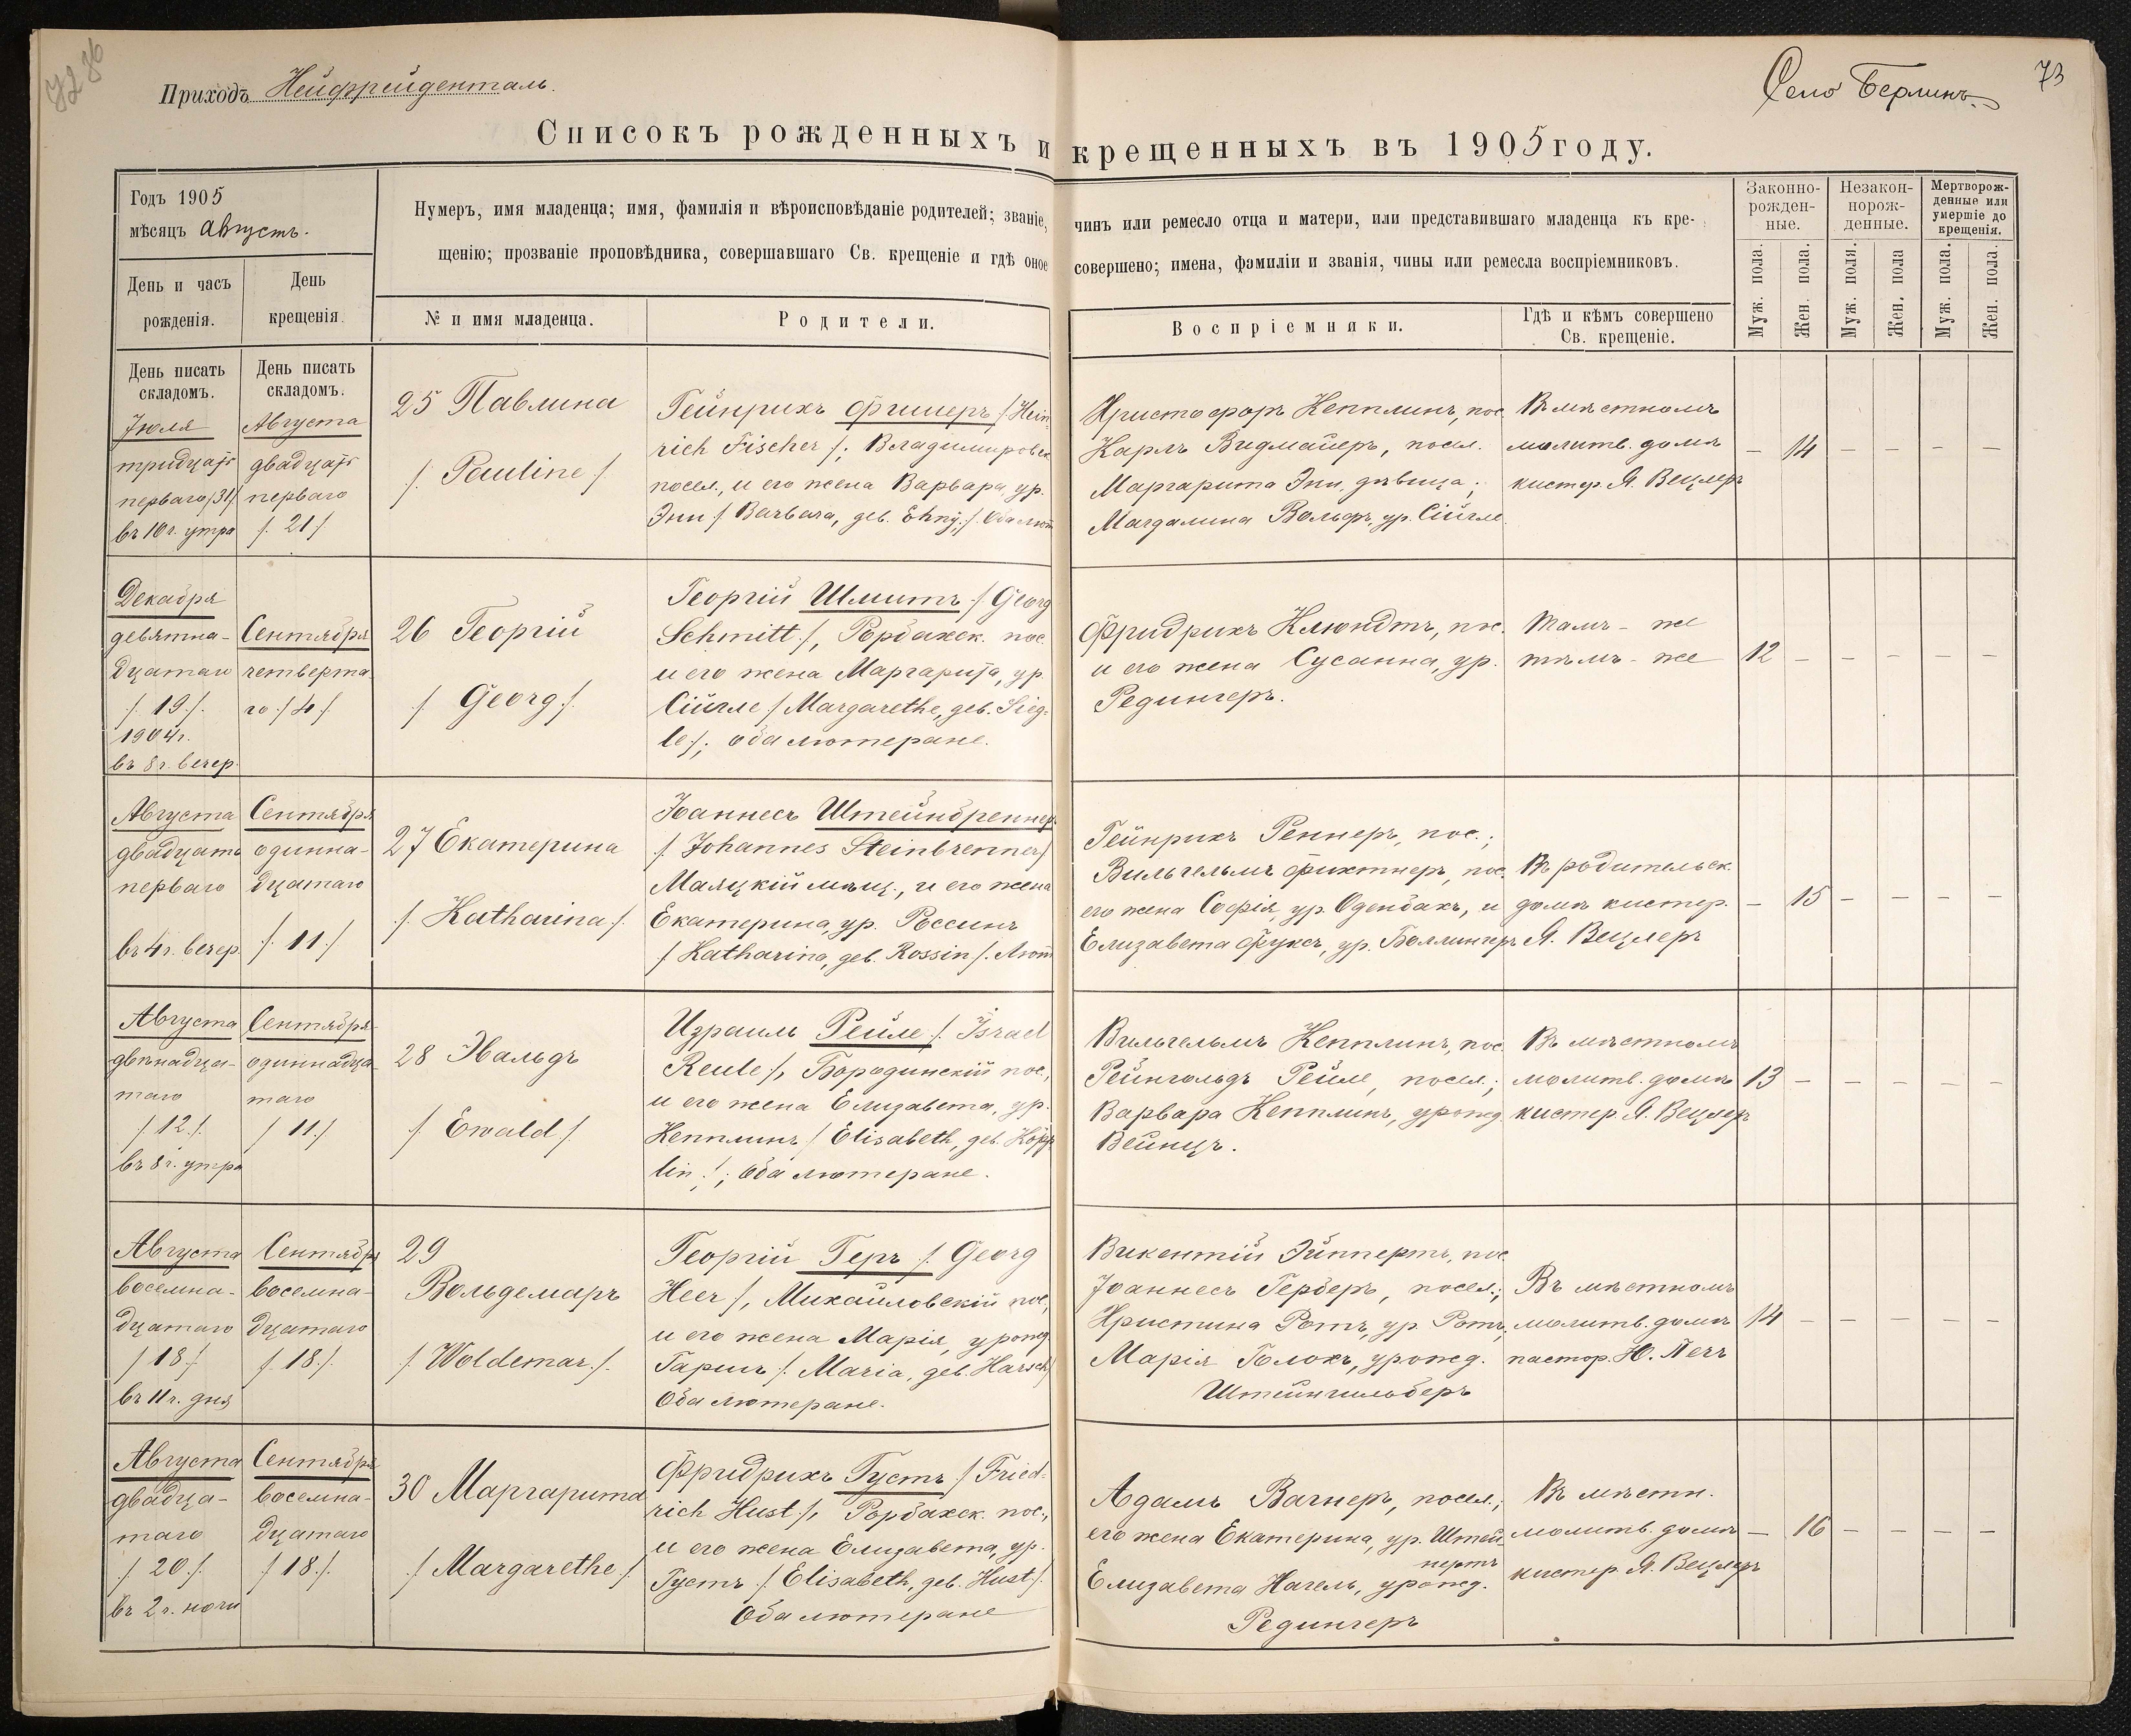 72 об
Приходъ Нейфрейденталь.
Село Берлинъ.
73
Списокъ рожденныхъ и крещенныхъ въ 1905 году.
Годъ 1905
мѣсяцъ Августъ.
День и часъ
рожденія.
День
крещенія.
Нумеръ, имя младенца; имя, фамилія и вѣроисповѣданіе родителей; званіе, чинъ или ремесло отца и матери, или представившаго младенца къ кре-
щенію; прозваніе проповѣдника, совершавшаго Св. крещеніе и гдѣ оное совершено; имена, фамиліи и званія, чины или ремесла воспріемниковъ.
№ и имя младенца.
Родители.
Воспріемники.
Гдѣ и кѣмъ совершено
Св. крещеніе.
Законно-
рожден-
ные.
Незакон-
норож-
денные.
Мертворож-
денные или
умершіе до
крещенія.
Муж. пола.
Жен. пола.
Муж. пола.
Жен. пола
Муж. пола.
Жен. пола.
День писать
складомъ.
День писать
складомъ.
Іюля
тридцать
перваго /31/
въ 10 ч. утра
Августа
двадцать
перваго
/. 21 /
25 Павлина
/. Pauline /.
Гейнрихъ Фишеръ /. Hein-
rich Fischer /.; Владимировск.
посел., и его жена Варвара, ур.
Эни /. Barbara, geb. Ehny./. Оба лют
Христофоръ Кепплинъ, пос.
Карлъ Видмайеръ, посел.
Маргарита Эни, дѣвица;
Магдалина Вольфъ, ур. Сійгле.
Въ мѣстномъ
молитв. домѣ
кистер. Я. Вецлеръ
— 14 — — — —
Декабря
девятна-
дцатаго
/. 19 /.
1904 г.
въ 8 ч. вечер.
Сентября
четверта
го /. 4 /
26 Георгій
/. Georg /.
Георгій Шмитъ /. Georg
Schmitt /., Рорбахск. пос.
и его жена Маргарита, ур.
Сійгле /. Margarethe, geb. Sieg-
le /.; оба лютеране.
Фридрихъ Клюндтъ, пос.
и его жена Сусанна, ур.
Редингеръ.
Тамъ-же
тѣмъ-же
12 — — — — —
Августа
двадцать
перваго
въ 4 ч. вечер.
Сентября
одинна-
дцатаго
/. 11 /
27 Екатерина
/. Katharina /.
Іоаннесъ Штейнбреннеръ
/. Johannes Steinbrenner /
Маяцкій мѣщ., и его жена
Екатерина, ур. Россинъ
/. Katharina, geb. Rossin /. Лют
Гейнрихъ Реннеръ, пос.;
Вильгельмъ Фихтнеръ, пос.
его жена Софія, ур. Оденбахъ, и
Елизавета Фуксъ, ур. Боллингеръ
Въ родительск.
домѣ кистер.
Я. Вецлеръ
— 15 — — — —
Августа
двѣнадца-
таго
/. 12 /.
въ 8 ч. утра
Сентября
одиннадца-
таго
/ 11 /.
28 Эвальдъ
/. Ewald /
Израиль Рейле /. Israel
Reule /., Бородинскій пос.,
и его жена Елизавета, ур.
Кепплинъ /. Elisabeth, geb. Köpp-
lin /.; Оба лютеране.
Вильгельмъ Кепплинъ, пос.
Рейнгольдъ Рейле, посел.;
Варвара Кепплинъ, урожд.
Вейнцъ.
Въ мѣстномъ
молитв. домѣ
кистер Я. Вецлеръ
13 — — — — —
Августа
восемна-
дцатаго
/ 18 /
въ 11 ч. дня
Сентября
восемна-
дцатаго
/. 18 /.
29
Вольдемаръ
/. Woldemar /.
Георгій Геръ /. Georg
Heer /., Михайловскій пос.,
и его жена Марія, урожд.
Гаршъ /. Maria, geb. Harsch /
Оба лютеране.
Викентій Эйппертъ, пос.
Іоаннесъ Герберъ, посел.;
Христина Ротъ, ур. Ротъ;
Марія Блокъ, урожд.
Штейнгильберъ
Въ мѣстномъ
молитв. домѣ
пастор. Ю. Печъ
14 — — — — —
Августа
двадца-
таго
/. 20 /.
въ 2 ч. ночи
Сентября
восемна-
дцатаго
/ 18 /.
30 Маргарита
/. Margarethe /.
Фридрихъ Густъ /. Fried-
rich Hust /., Рорбахск. пос.,
и его жена Елизавета, ур.
Густъ /. Elisabeth, geb. Hust /.
Оба лютеране
Адамъ Вагнеръ, посел.;
его жена Екатерина, ур. Штей
пертъ
Елизавета Нагель, урожд.
Редингеръ
Въ мѣстн.
молитв. домѣ
кистер. Я. Вецлеръ
— 16 — — — —